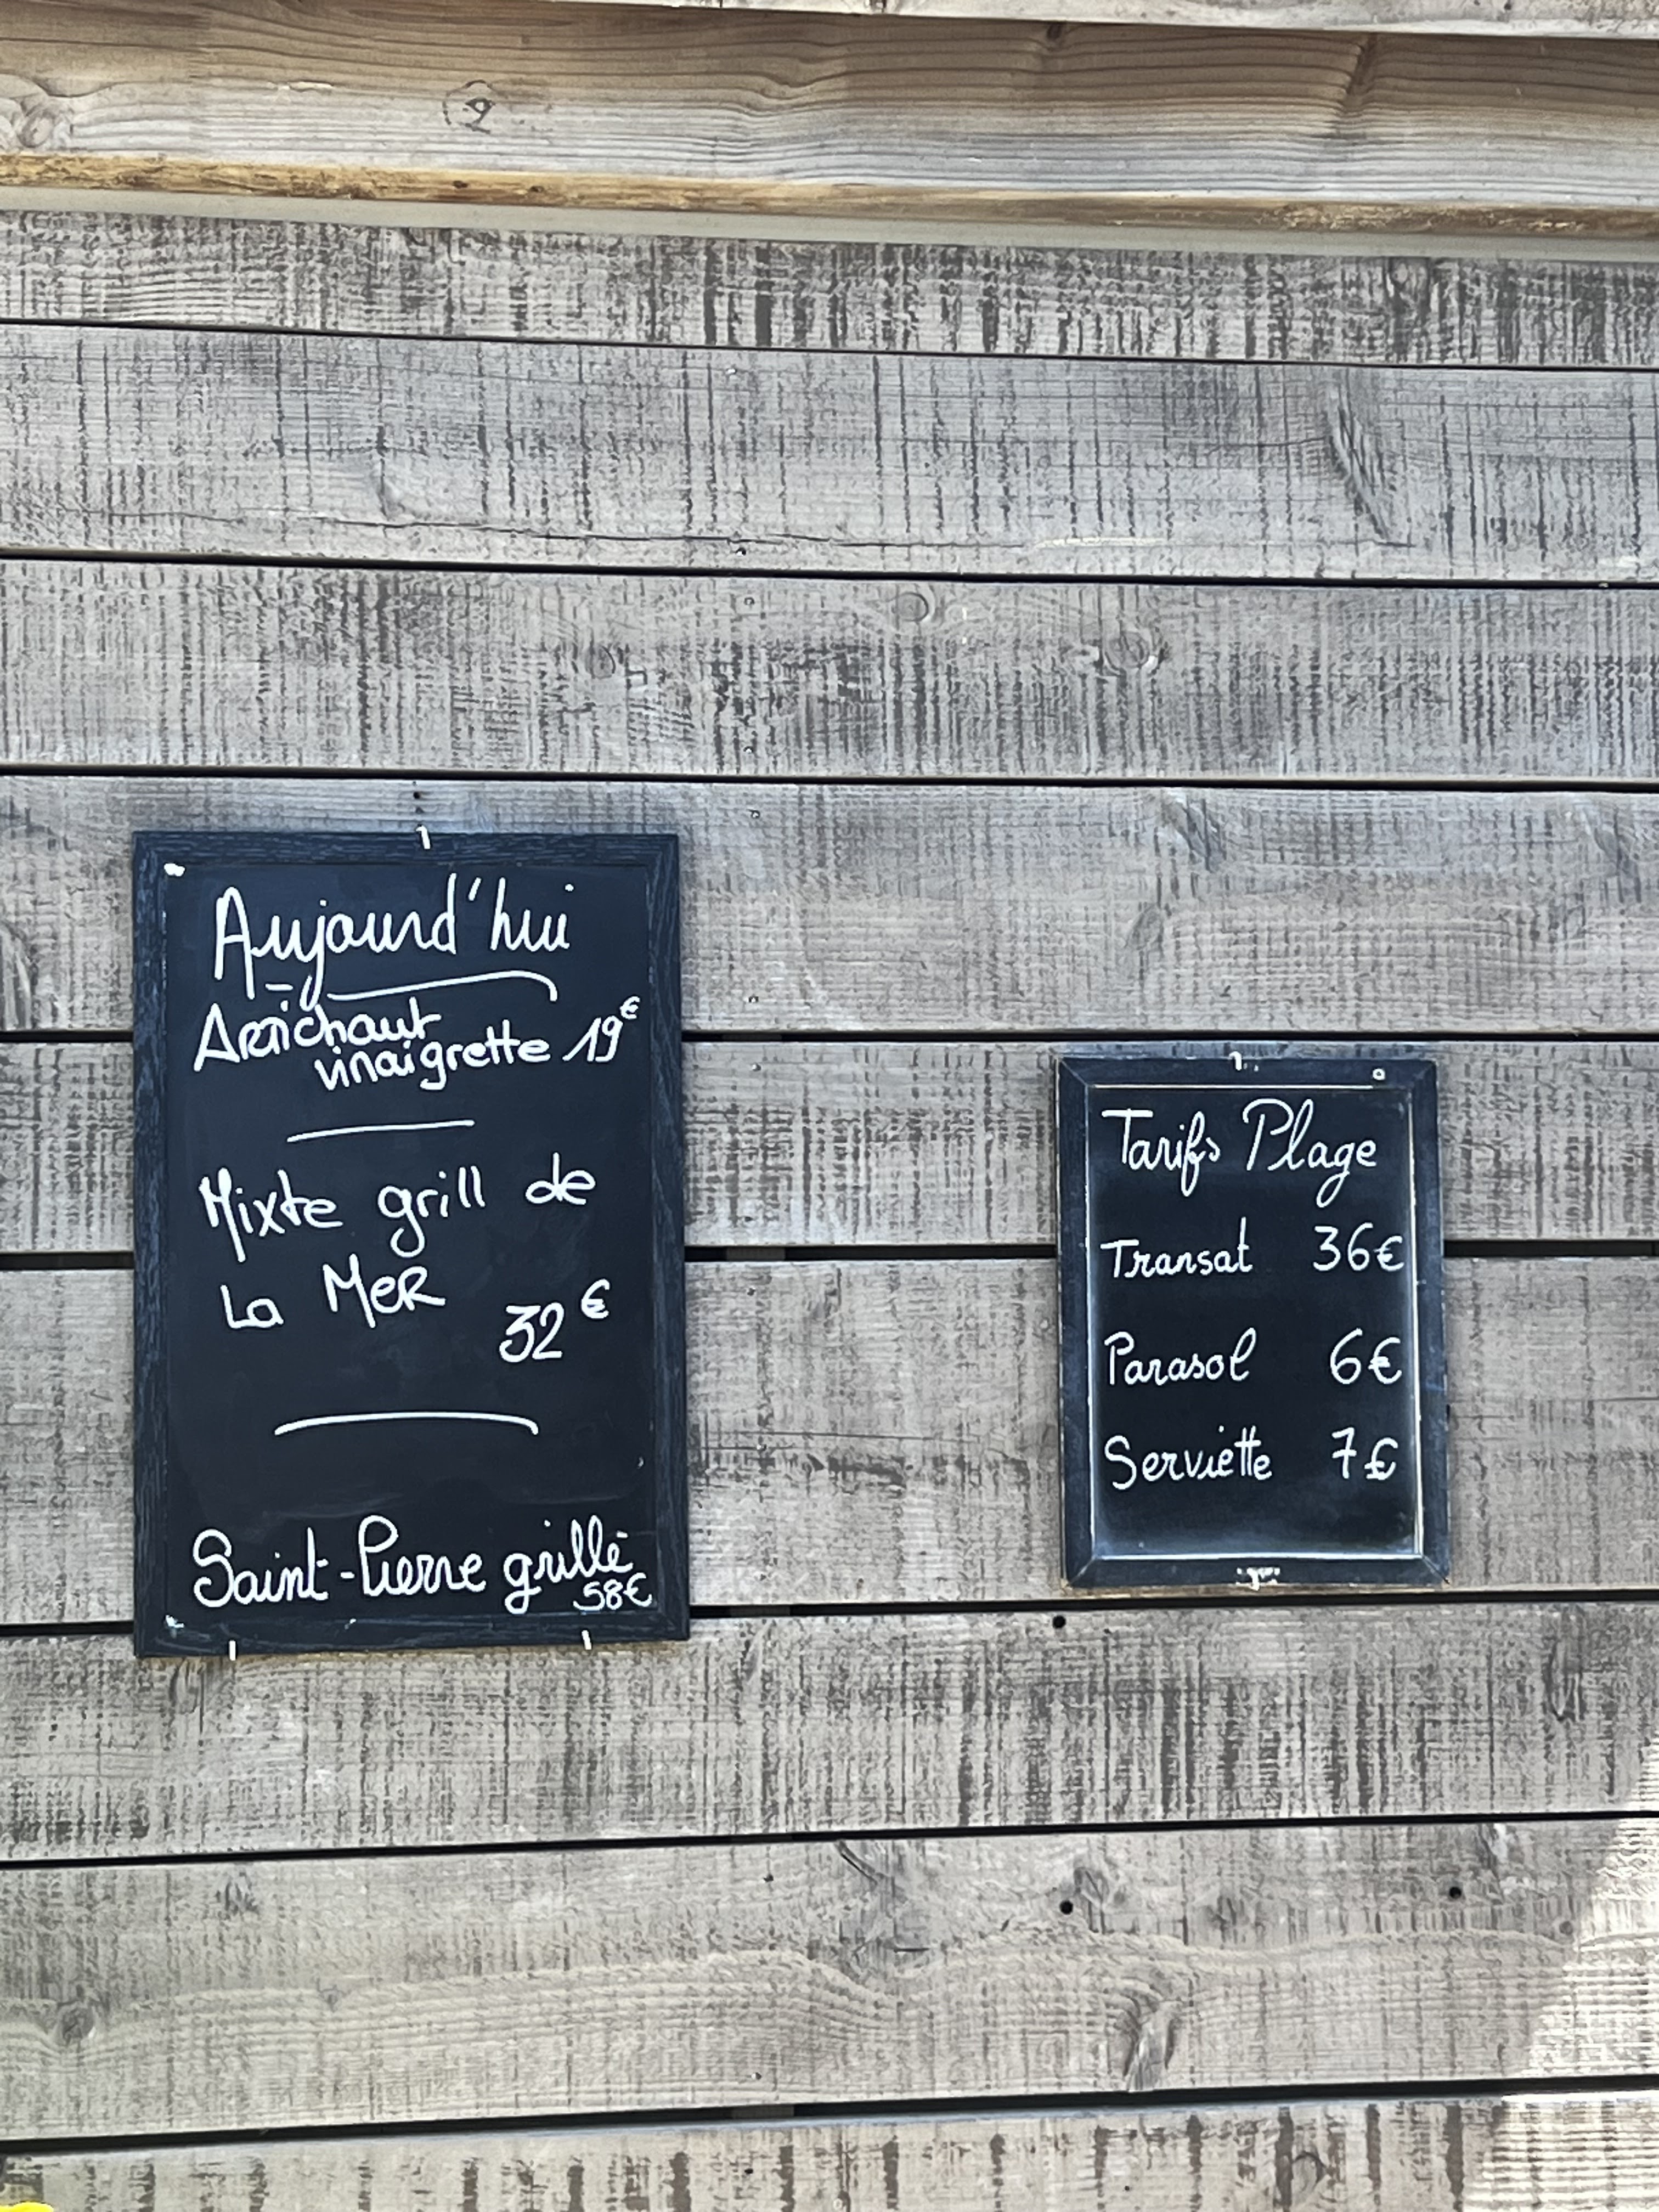 Aujourd'hui
Artichaut
vinaigrette 19€
Mixte grill de
La MER
32€
Saint-Pierre grillé
58€
Tarifs Plage
Transat 36€
Parasol 6€
Serviette 7€